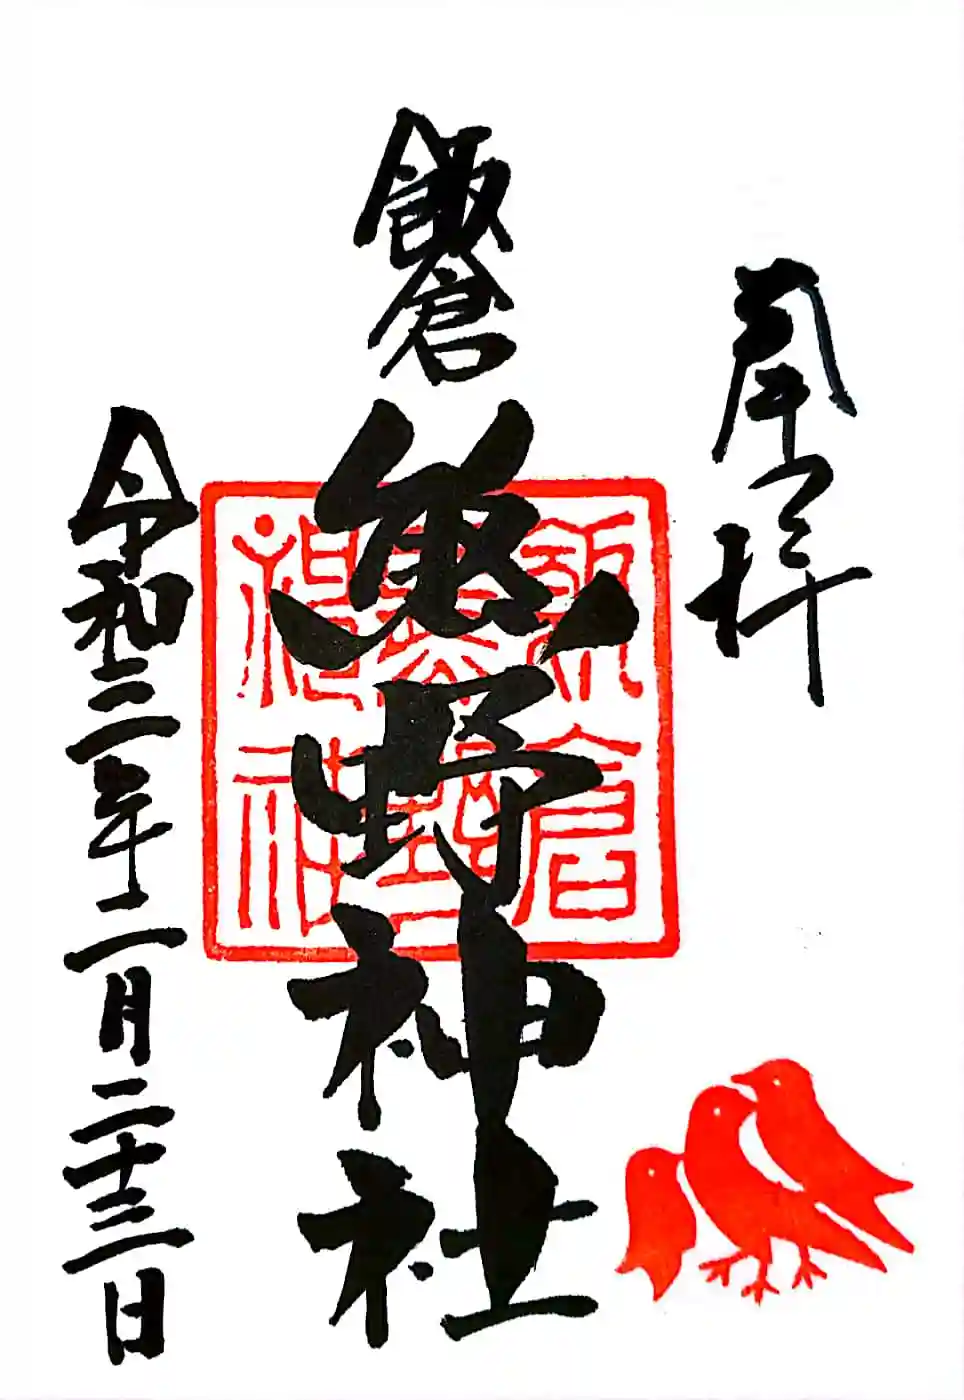 奉拝
飯倉
熊野神社
令和三年二月二十三日
飯倉
熊野
神社